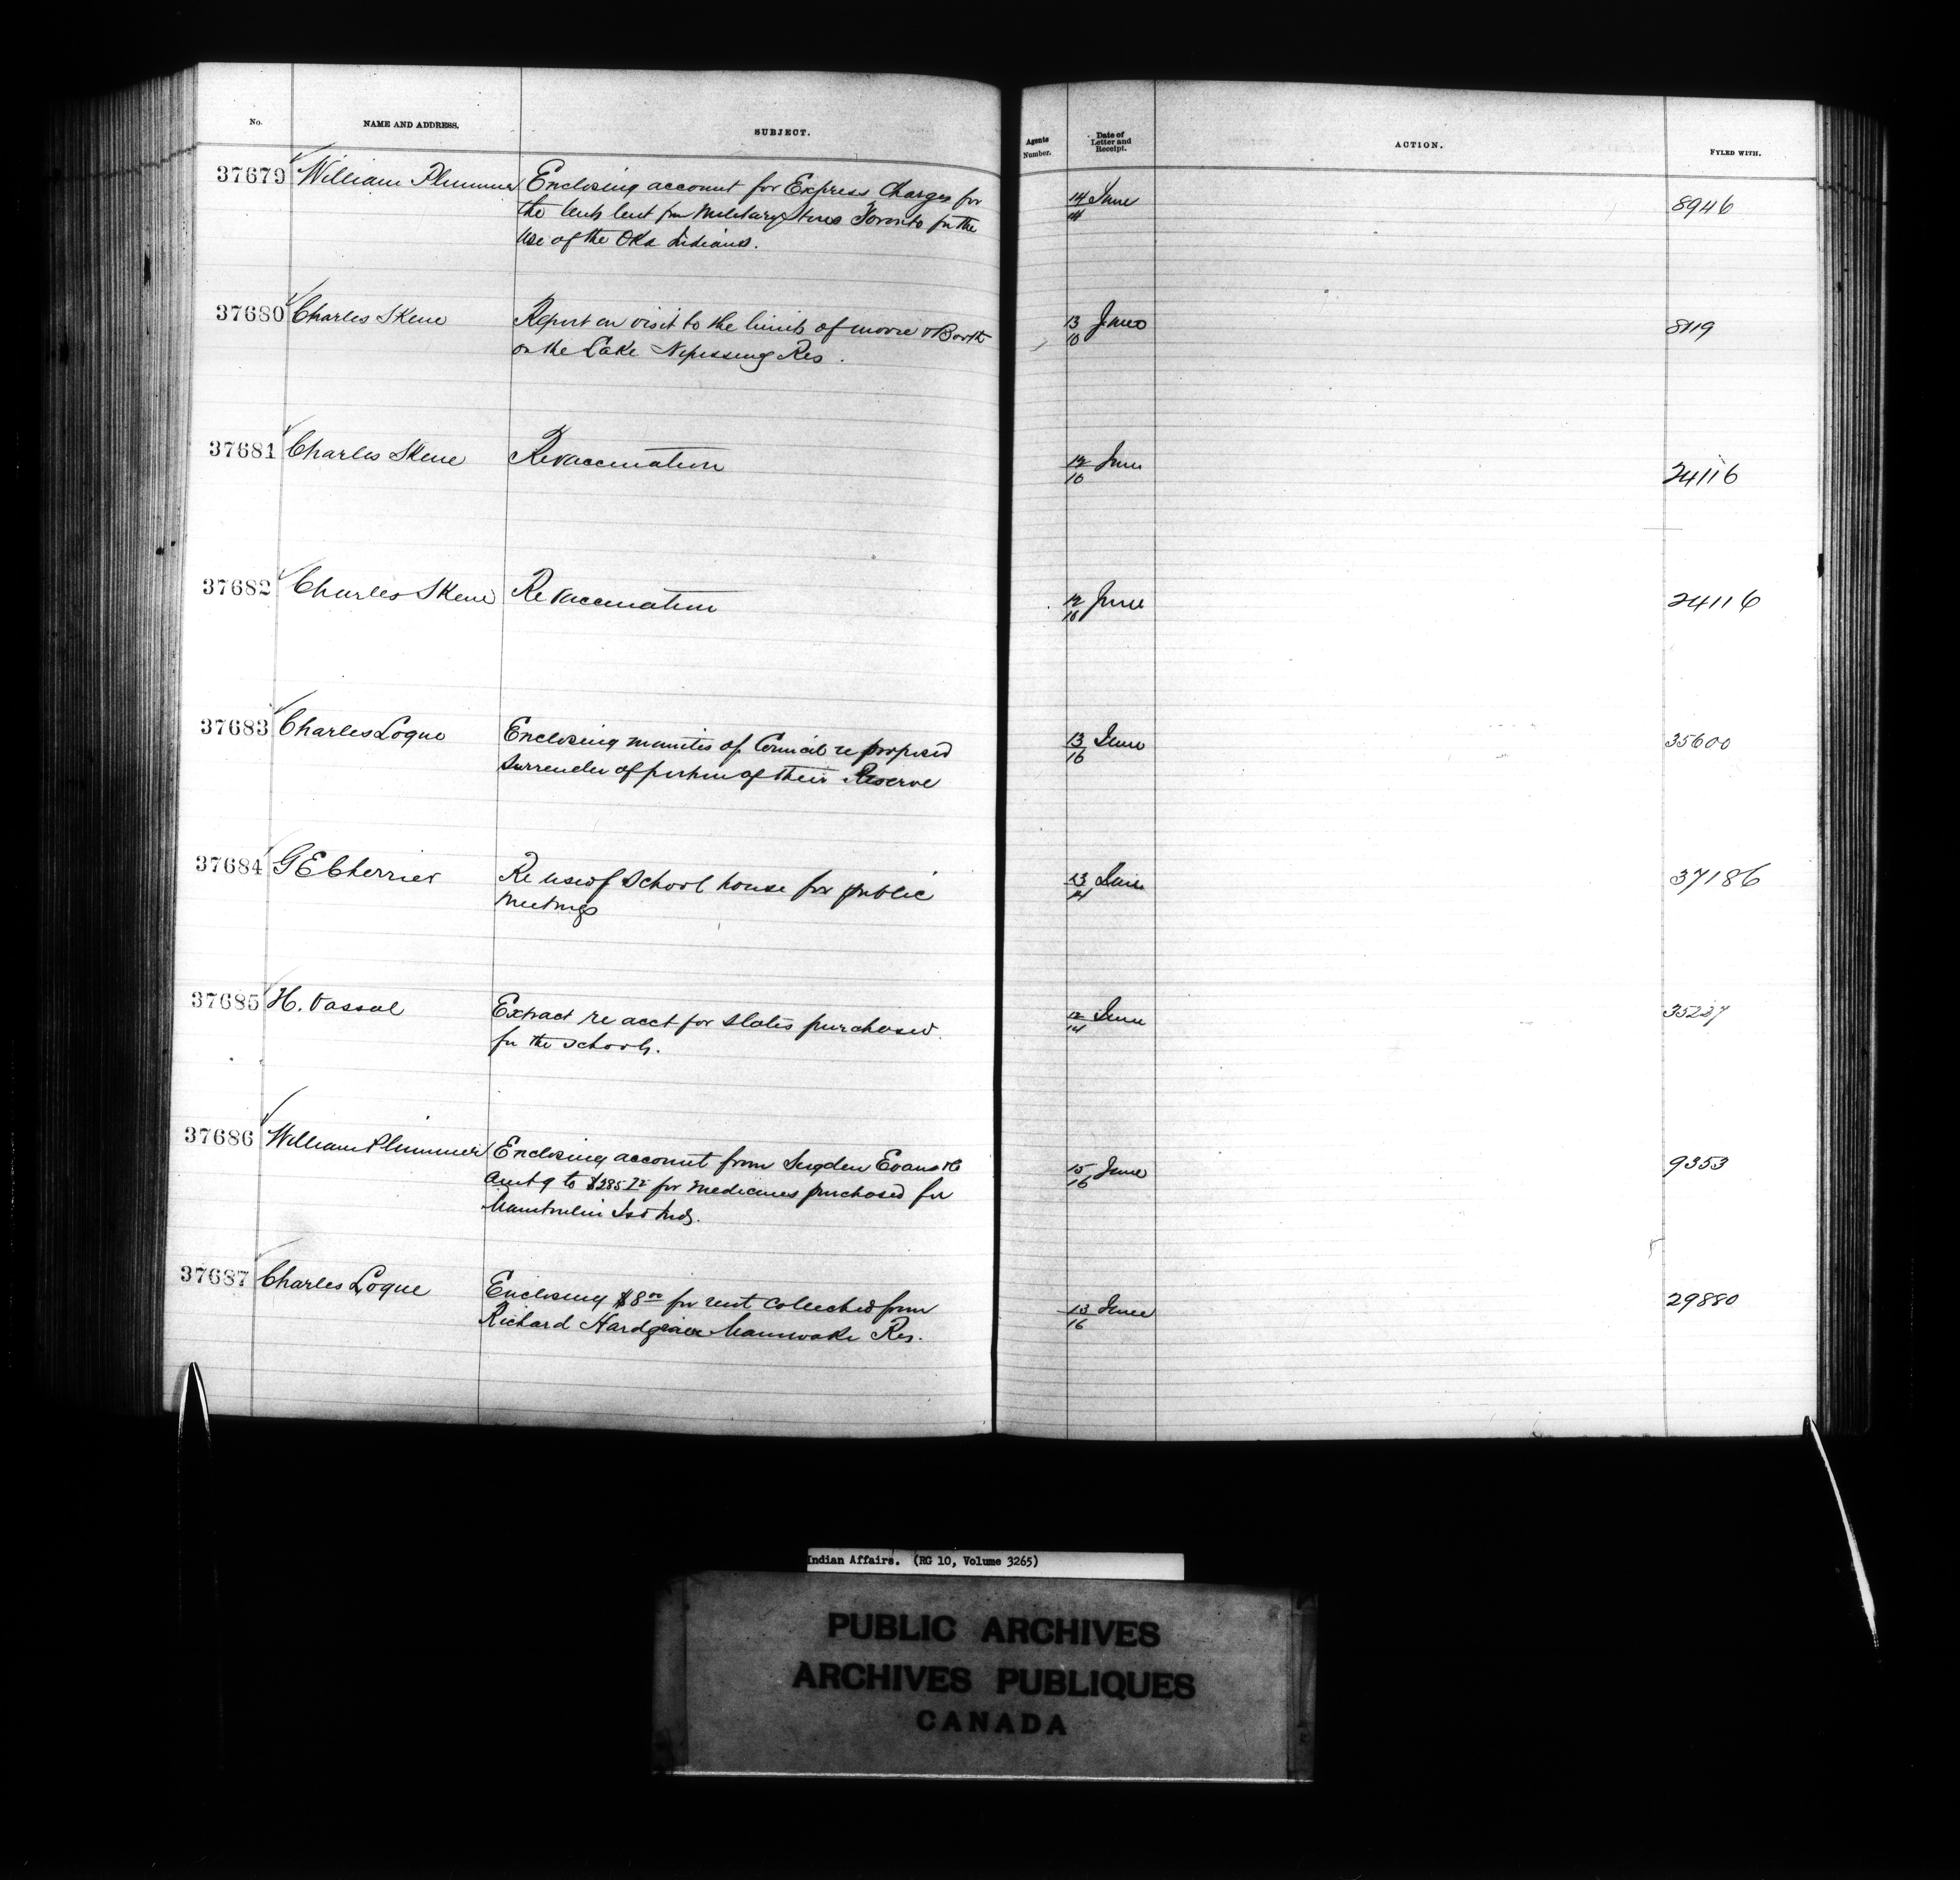 No. NAME AND ADDRESS. SUBJECT. Agents Number. Date of Letter and Receipt. ACTION. FYLED WITH.
37679 William Plummer Enclosing account for Express Charges for 14/14 June 8946
the tents lent fm Military Stores Toronto for the
use of the Oka Indians.
37680 Charles Skene Report on visit to the limits of Moore & Booth 13/16 June 8119
on the Lake Nipissing Res.
37681 Charles Skene Re vaccination 12/16 June 24116
37682 Charles Skene Re vaccination 12/16 June 24116
37683 Charles Logue Enclosing minutes of Council re proposed 13/16 June 35600
Surrender of portion of their Reserve
37684 G E Cherrier Re use of School house for public 13/14 June 37186
meetings
37685 H. Vassal Extract re acct for slates purchased 12/14 June 35237
for the schools.
37686 William Plummer Enclosing account from Sugden Evans & Co 15/16 June 9353
amtg to $285 for medicines purchased for
Manitoulin Isd Inds.
37687 Charles Logue Enclosing $8 00 for rent collected from 13/16 June 29880
Richard Maniwaki Res.
Indian Affairs. (RG 10, Volume 3265)
PUBLIC ARCHIVES
ARCHIVES PUBLIQUES
CANADA